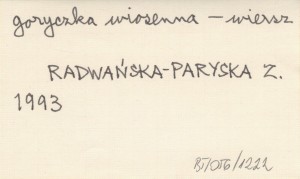 goryczka wiosenna – wiersz
RADWAŃSKA-PARYSKA Z.
1993
BT/OTG/1222